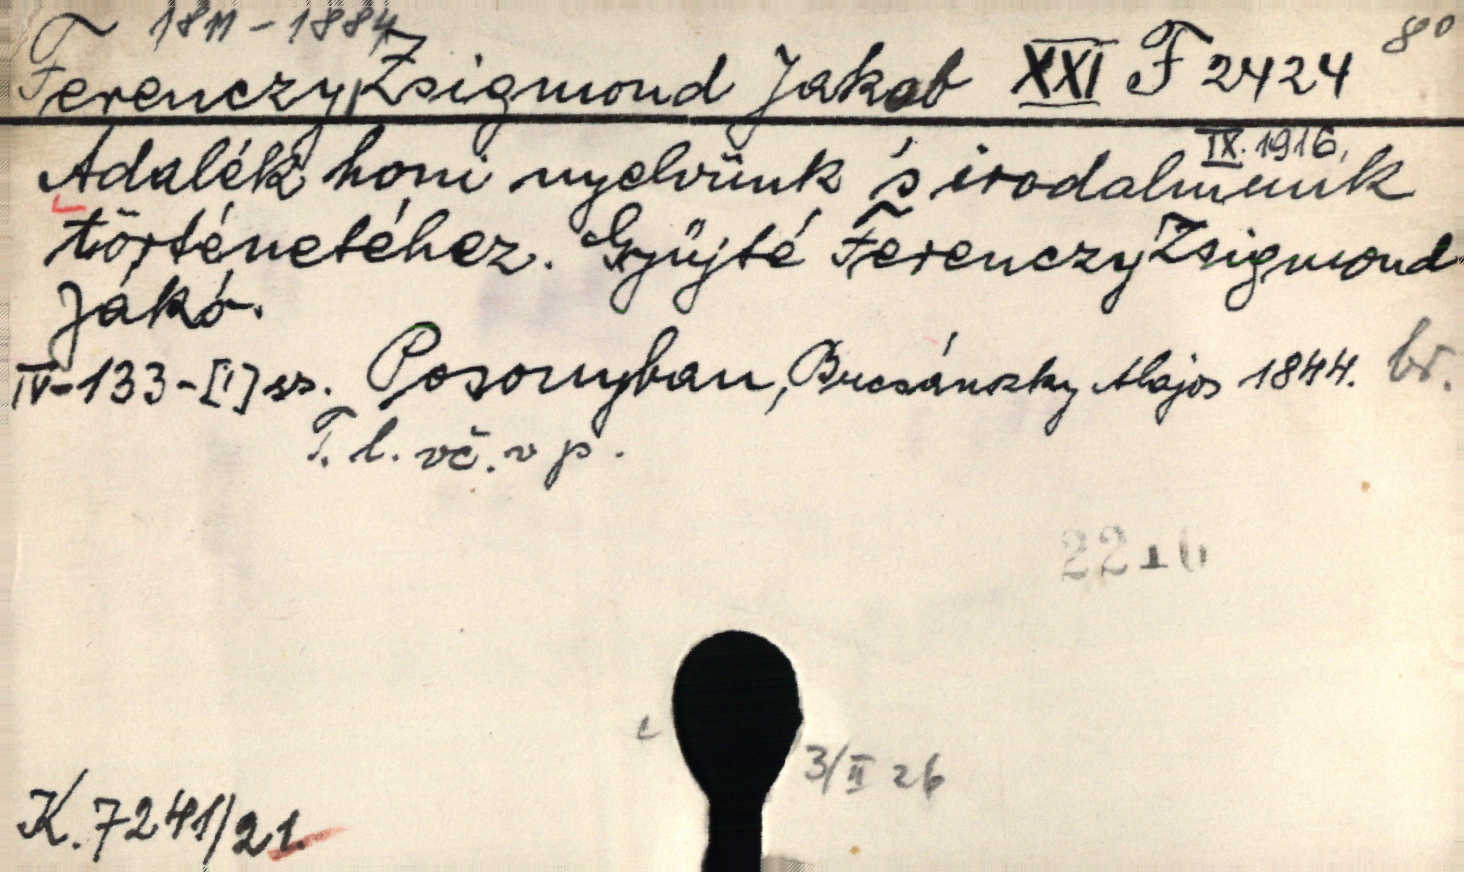 1811-1884
Ferenczy, Zsigmond Jakab XXI F 2424 8°
IX. 1916,
Adalék honi nyelvünk 's irodalmunk
történetéhez. Gyűjté Ferenczy Zsigmond
Jákó.
IV-133-[1] ss. Posonyban, Bucsánszky Alajos 1844. br.
T. l. vč. v p.
2216
3/II 26
K. 7241/21.